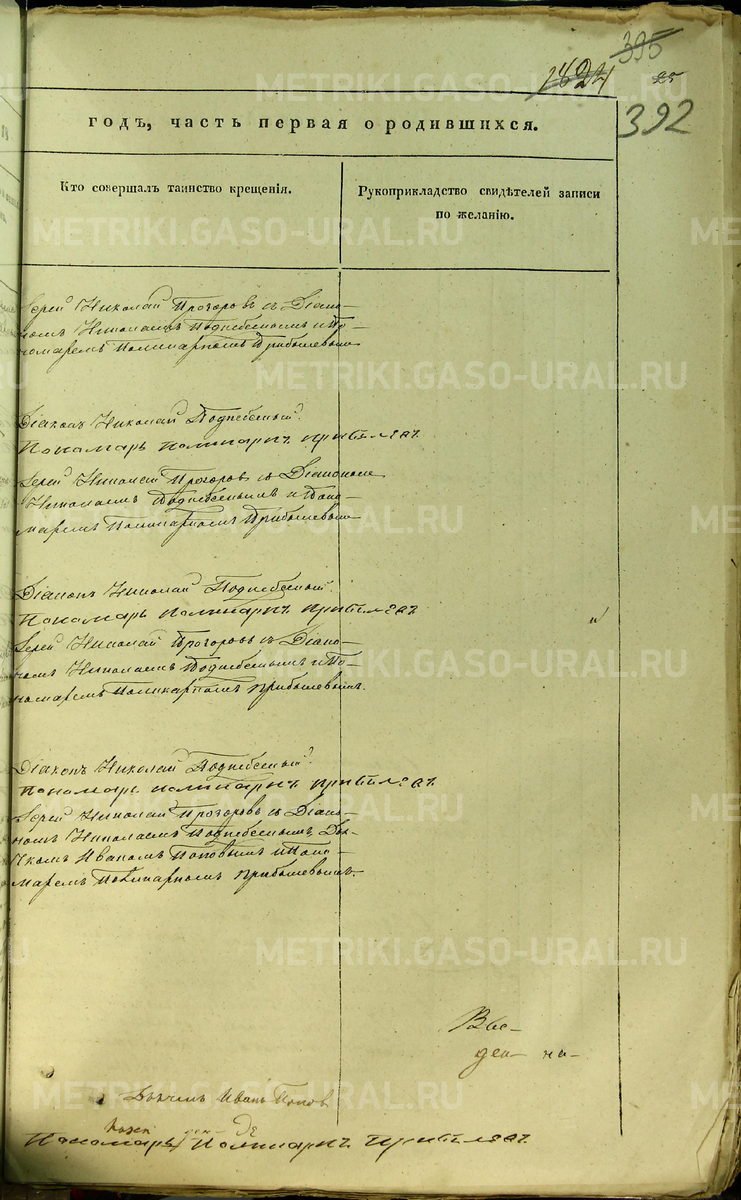 395
1824
25
392
годъ, часть первая о родившихся.
Кто совершалъ таинство крещенія.
Рукоприкладство свидѣтелей записи
по желанію.
METRIKI.GASO-URAL.RU
Іерей Николай Прозоровъ съ Діако-
номъ Николаемъ Поднебеснымъ и По-
номаремъ Поликарпомъ Прибылевымъ
Діаконъ Николай Поднебесный.
Пономарь Поликарпъ Прибылевъ.
Іерей Николай Прозоровъ съ Діакономъ
Николаемъ Поднебеснымъ и Поно-
маремъ Поликарпомъ Прибылевымъ
Діаконъ Николай Поднебесный.
Пономарь Поликарпъ Прибылевъ.
Іерей Николай Прозоровъ съ Діако-
номъ Николаемъ Поднебеснымъ и По-
номаремъ Поликарпомъ Прибылевымъ.
Діаконъ Николай Поднебесный.
Пономарь Поликарпъ Прибылевъ.
Іерей Николай Прозоровъ съ Діако-
номъ Николаемъ Поднебеснымъ, Дья-
чкомъ Иваномъ Поповымъ и Поно-
маремъ Поликарпомъ Прибылевымъ.
Дьячекъ Иванъ Попов
Пономарь Поликарпъ Прибылевъ.